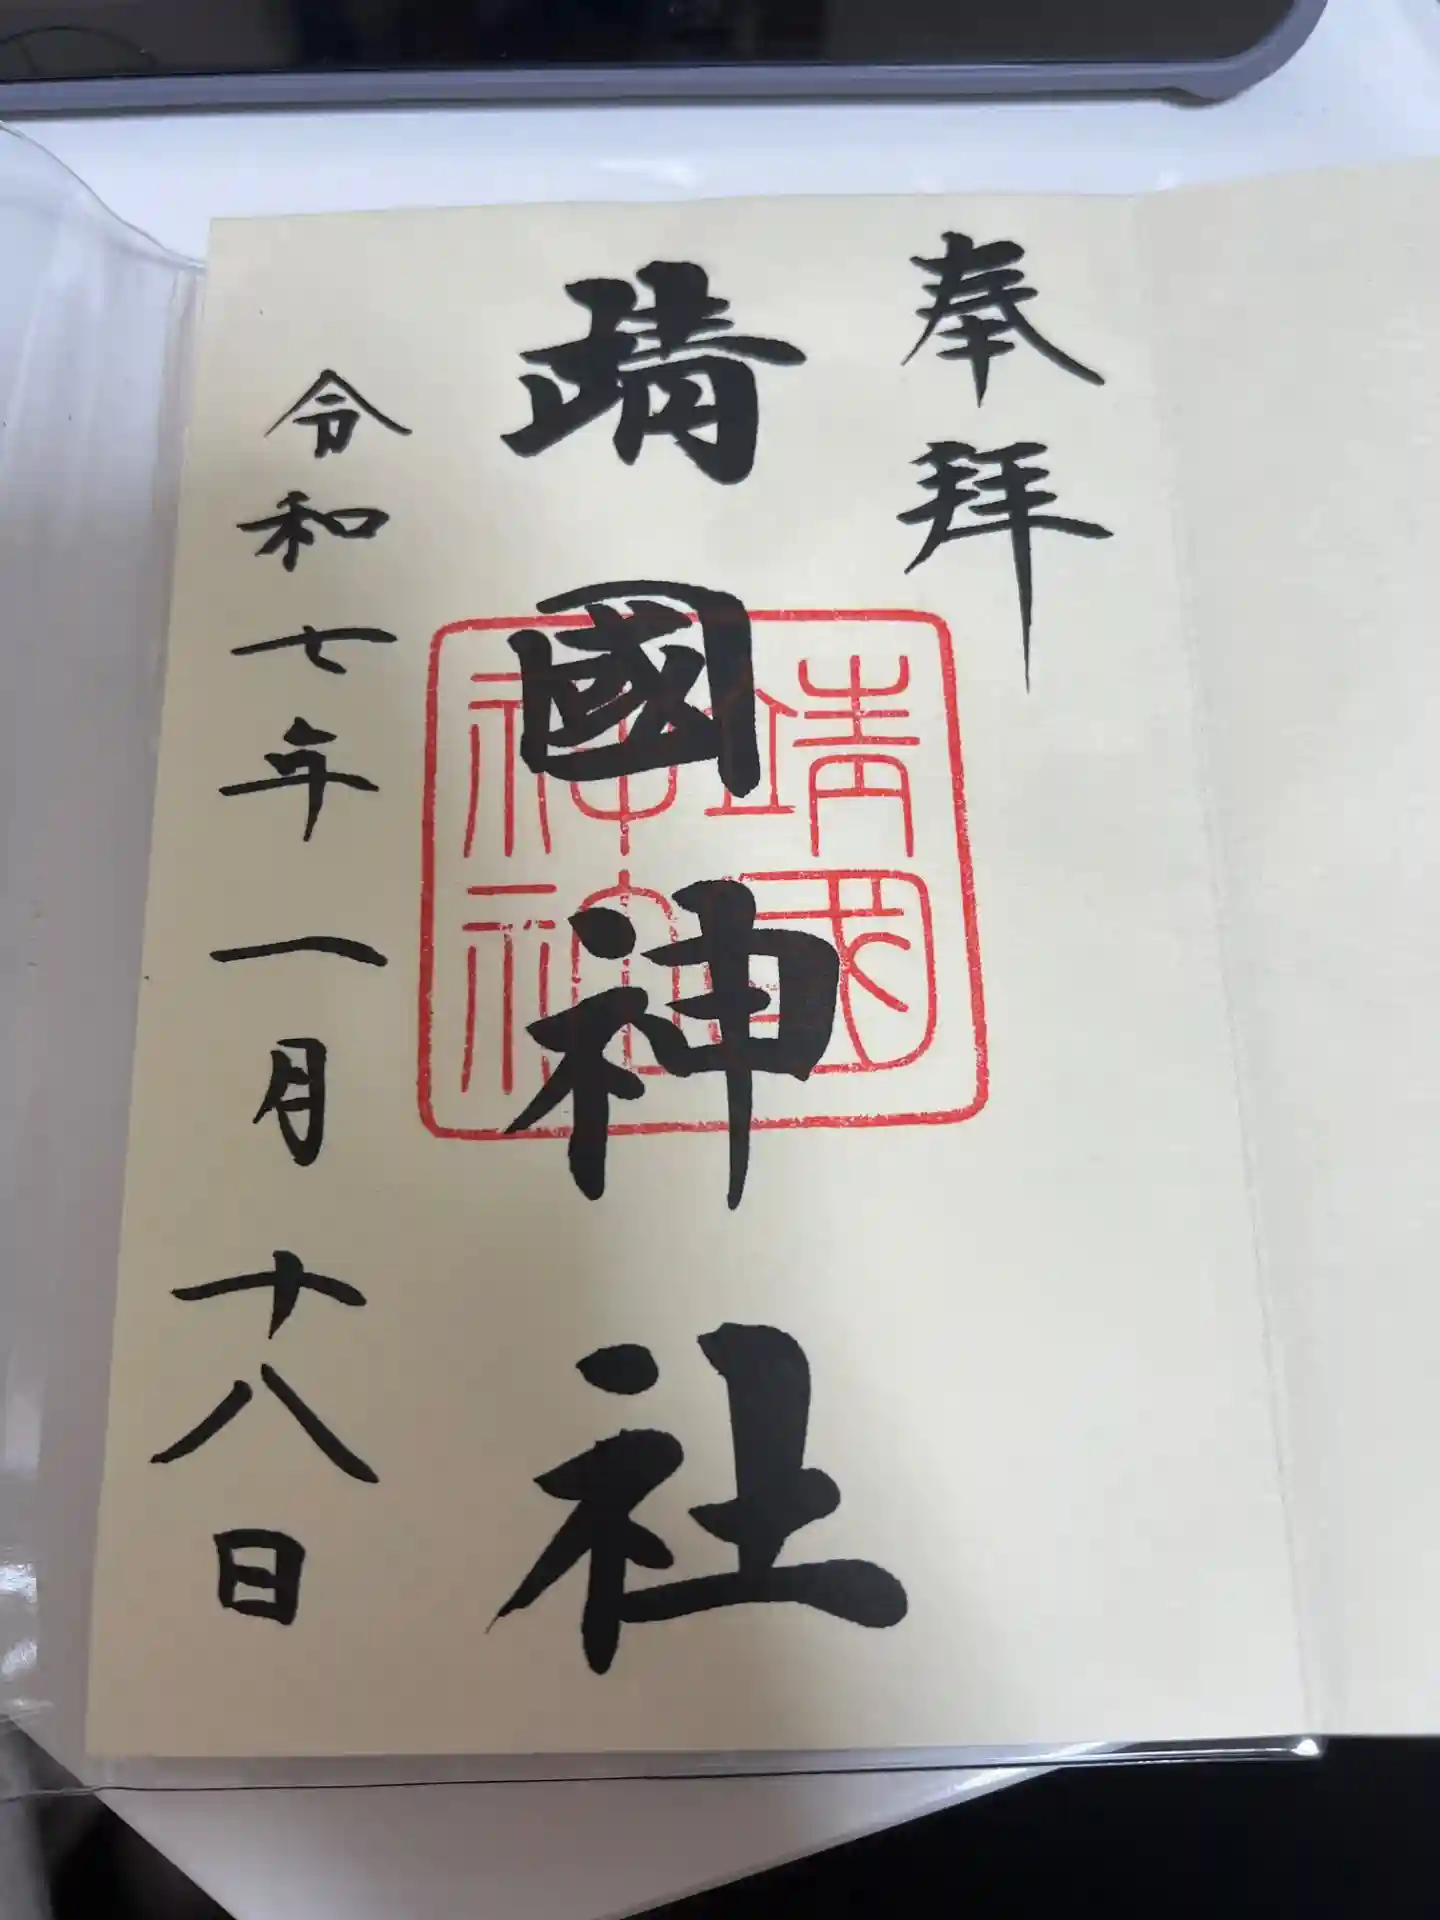 奉拝
靖國神社
靖國
神社
令和七年一月十八日